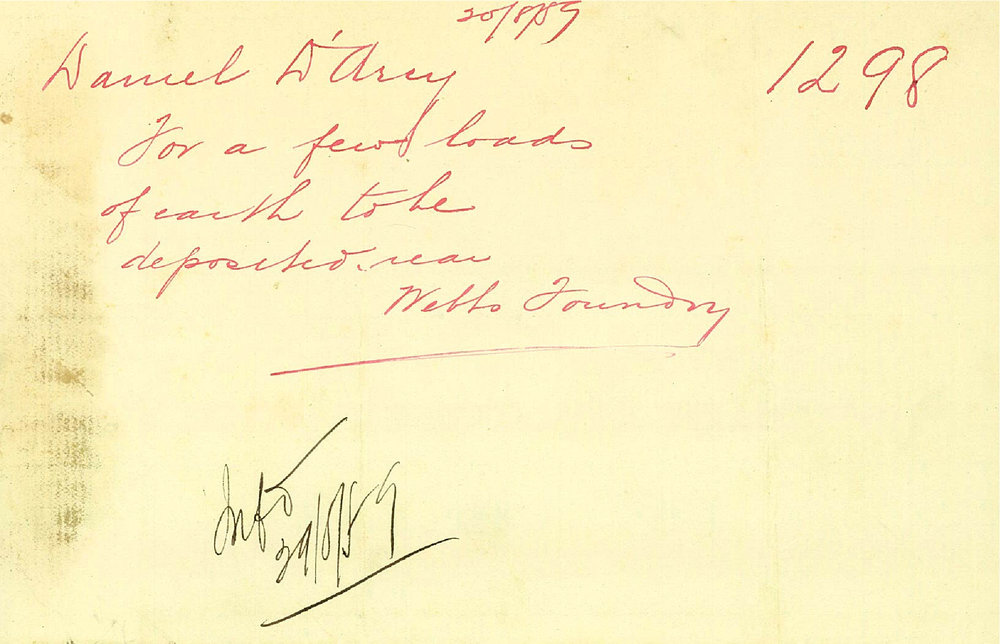 20/8/89
Daniel D'Arcy
1298
For a few loads
of earth to be
deposited near
Webbs Foundry
Infd
29/8/89